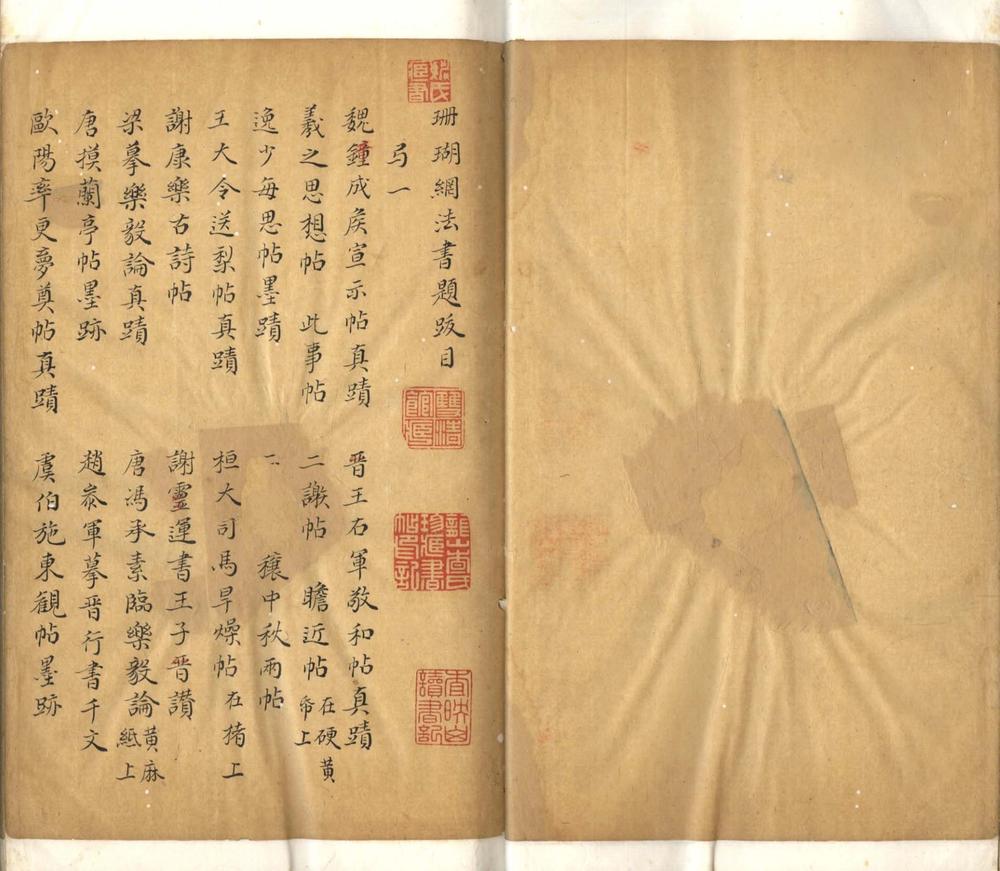 珊瑚網法書題跋目
弓一
魏鐘成侯宣示帖真蹟 晋王右軍敬和帖真蹟
羲之思想帖 此事帖 二謝帖 瞻近帖 在硬黄帋上
逸少每思帖墨蹟 穰中秋兩帖
王大令送梨帖真蹟 桓大司馬旱燥帖 在楮上
謝康樂古詩帖 謝靈運書王子晋讃
梁摹樂毅論真蹟 唐馮承素臨樂毅論 黄麻紙上
唐摸蘭亭帖墨跡 趙叅軍摹晋行書千文
歐陽率更夢奠帖真蹟 虞伯施東觀帖墨跡
姚氏藏書
查映山讀書記